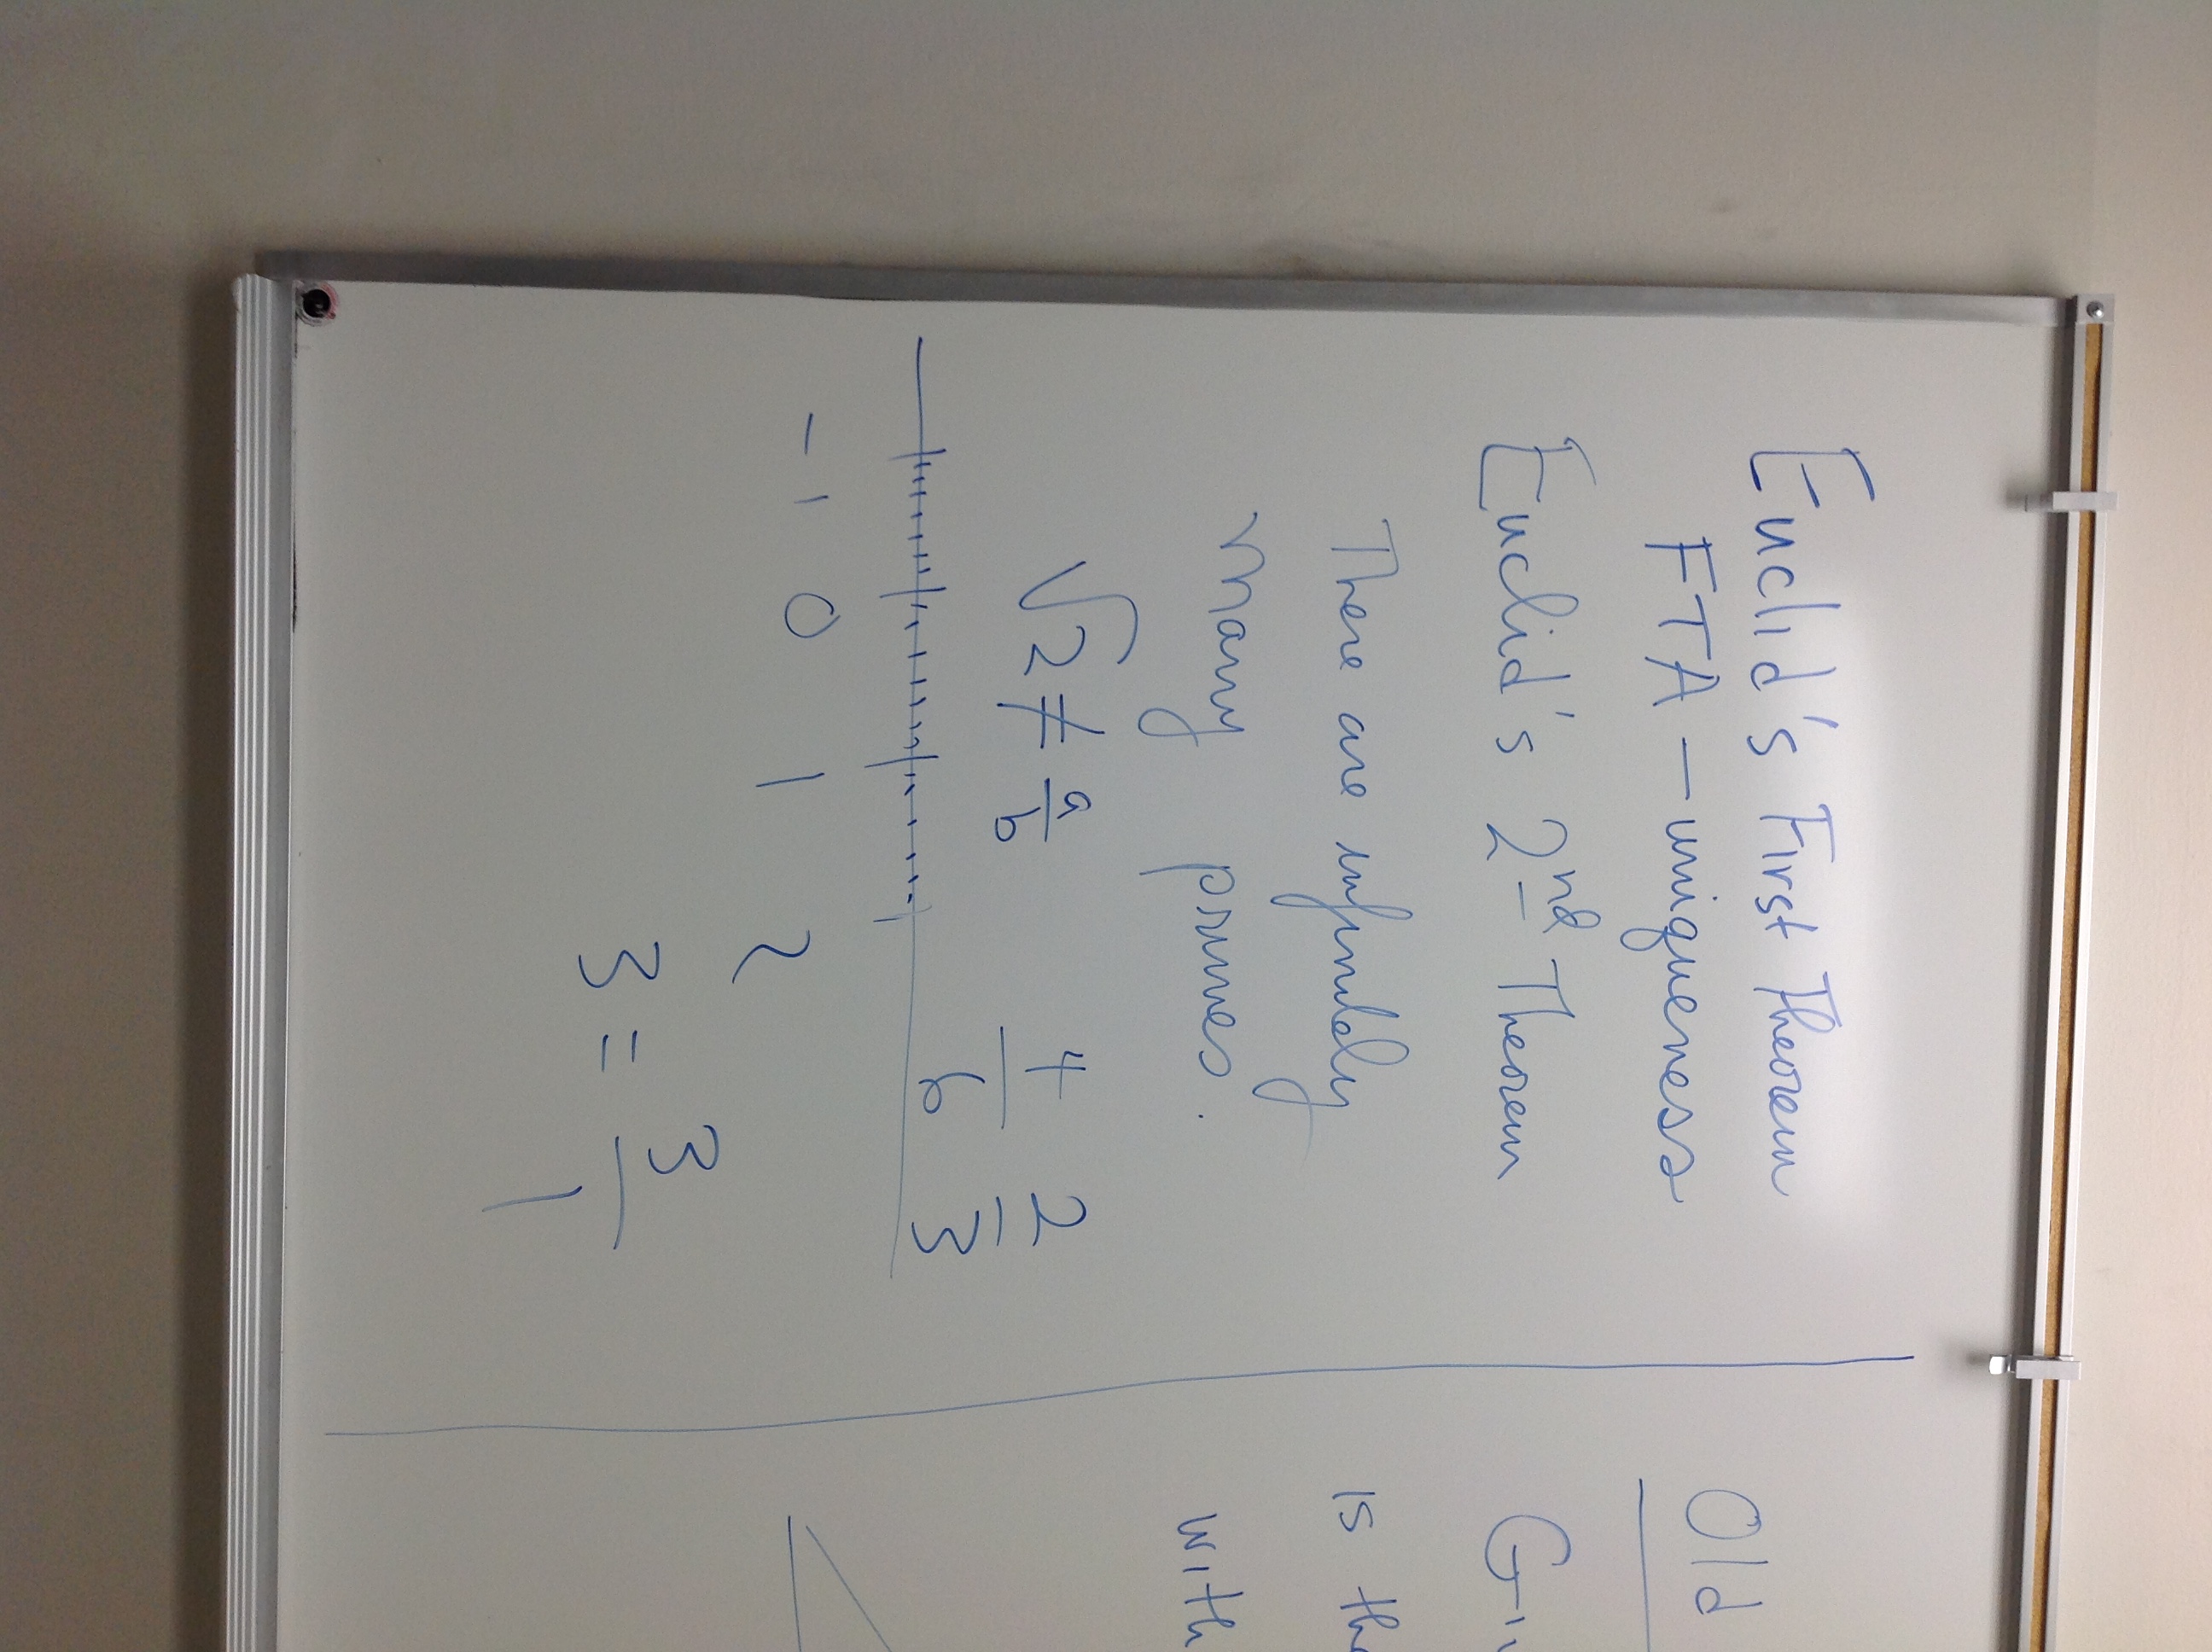 Euclid's First Theorem
FTA - uniqueness
Euclid's 2nd Theorem
There are infinitely
many primes.
√2 ≠ a/b
4/6 2/3
-1 0 1 2
3 = 3/1
Old
is the
with